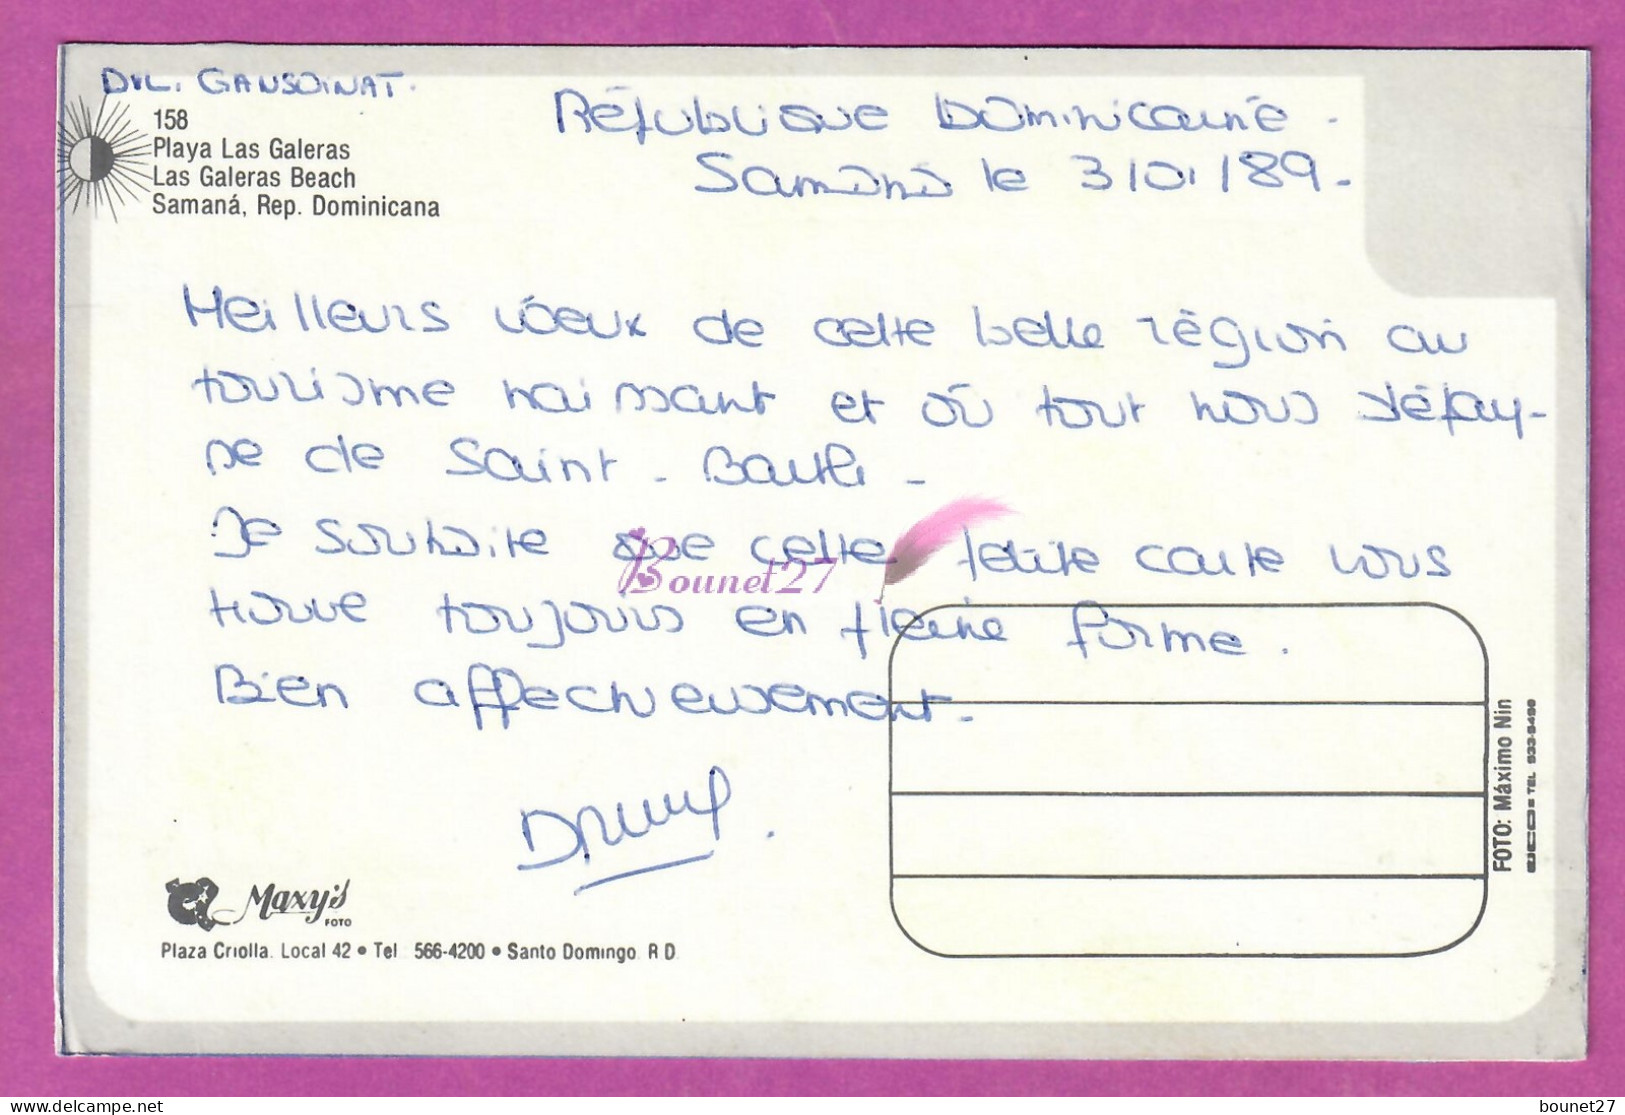 158
Playa Las Galeras
Las Galeras Beach
Samaná, Rep. Dominicana
République Dominicaine.
Samana le 3/01/89.
Meilleurs vœux de cette belle région au
tourisme naissant et où tout nous dépay-
se de Saint-Barth.
Je souhaite que cette petite carte vous
trouve toujours en pleine forme.
Bien affectueusement.
Bounet27
Maxy's
FOTO
Plaza Criolla. Local 42 • Tel 566-4200 • Santo Domingo. R D
FOTO: Máximo Nin
TEL 533-5496
bounet27
delcampe.net